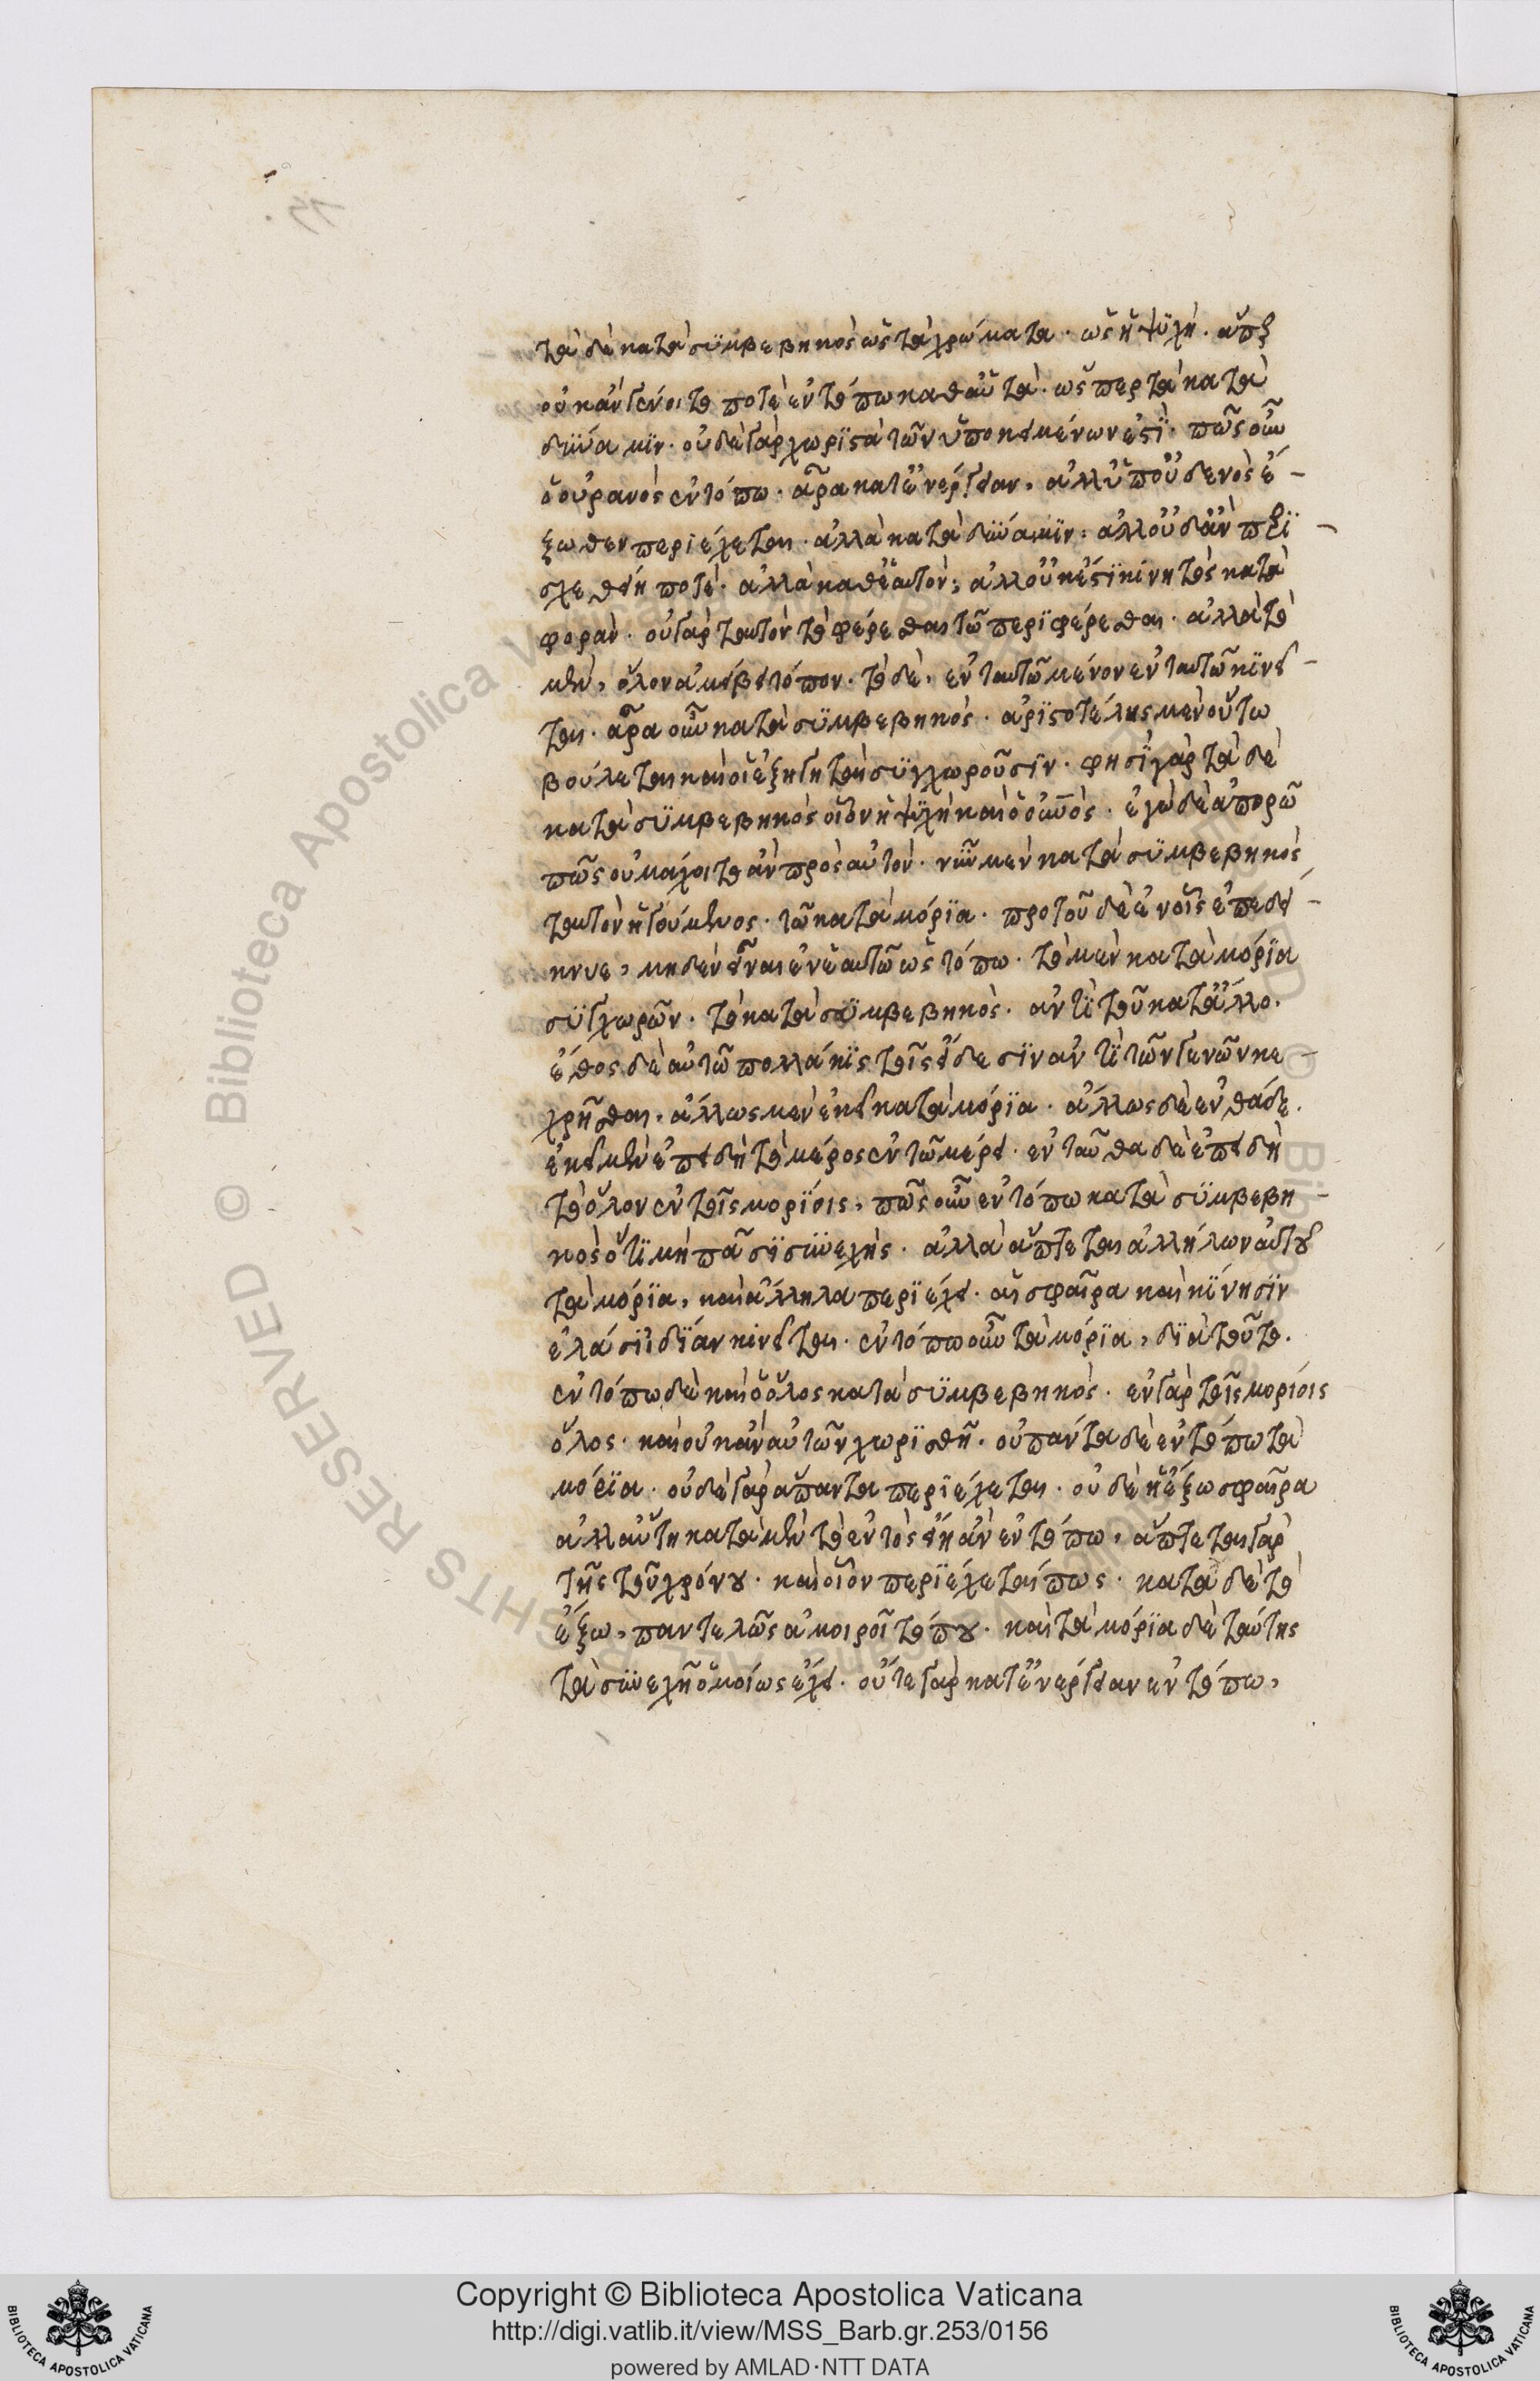 τὰ δὲ κατὰ συμβεβηκὸς ὡς τὰ χρώματα. ὡς ἡ ψυχή. ἅπερ
οὐκ ἂν γένοιτό ποτε ἐν τόπω καθ αὑτά. ὥσπερ τὰ κατὰ
δύναμιν. οὐδὲ γὰρ χωριστὰ τῶν ὑποκειμένων ἐστί. πῶς οὖν
ὁ οὐρανὸς ἐν τόπω. ἆρα κατ ἐνέργειαν, ἀλλ ὑπ οὐδενὸς ἔ-
ξωθεν περιέχεται. ἀλλὰ κατὰ δύναμιν, ἀλλ οὐδ ἂν περι-
σχεθείη ποτέ. ἀλλὰ καθ ἑαυτόν, ἀλλ οὐκ ἔστι κινητὸς κατὰ
φοράν. οὐ γὰρ ταυτὸν τὸ φέρεσθαι τῶ περιφέρεσθαι. ἀλλὰ τὸ
μὲν, ὅλον ἀμείβει τόπον. τὸ δὲ, ἐν ταυτῶ μένον ἐν ταυτῶ κινεῖ-
ται. ἆρα οὖν κατὰ συμβεβηκός. ἀριστοτέλης μὲν οὕτω
βούλεται καὶ οἱ ἐξηγηταὶ συγχωροῦσιν. φησὶ γὰρ τὰ δὲ
κατὰ συμβεβηκὸς οἷον ἡ ψυχὴ καὶ ὁ οὐνός. ἐγὼ δὲ ἀπορῶ
πῶς οὐ μάχοιτο ἂν πρὸς αὑτόν. νῦν μὲν κατὰ συμβεβηκὸς
ταυτὸν ἡγούμενος. τῶ κατὰ μόρια. πρὸ τοῦ δὲ ἐν οἷς ἐπεδεί-
κνυε, μηδὲν εἶναι ἐν ἑαυτῶ ὡς τόπω. τὸ μὲν κατὰ μόρια
συγχωρῶν. τὸ κατὰ συμβεβηκὸς. ἀντὶ τοῦ κατ ἄλλο.
ἔθος δὲ αὐτῶ πολλάκις τοῖς εἴδεσιν ἀντὶ τῶν γενῶν κε-
χρῆσθαι. ἄλλως μὲν ἐκεῖ κατὰ μόρια. ἄλλως δὲ ἐνθάδε.
ἐκεῖ μὲν ἐπειδὴ τὸ μέρος ἐν τῶ μέρει. ἐνταῦθα δὲ ἐπειδὴ
τὸ ὅλον ἐν τοῖς μορίοις, πῶς οὖν ἐν τόπω κατὰ συμβεβη-
κὸς ὅτι μὴ πᾶσι συνεχὴς. ἀλλὰ ἅπτεται ἀλλήλων αὐτοῦ
τὰ μόρια, καὶ ἄλληλα περιέχει. αἱ σφαῖρα καὶ κίνησιν
ἑλάστη ἰδίαν κινεῖται. ἐν τόπω οὖν τὰ μόρια, διὰ τοῦτο.
ἐν τόπω δὲ καὶ ὁ ὅλος κατὰ συμβεβηκὸς. ἐν γὰρ τοῖς μορίοις
ὅλος. καὶ οὐκ ἂν αὐτῶν χωρισθῆ. οὐ πάντα δὲ ἐν τόπω τὰ
μόρια. οὐδὲ γὰρ ἅπαντα περιέχεται. οὐδὲ ἡ ἔξω σφαῖρα
ἀλλ αὕτη κατὰ μὲν τὸ ἐντὸς εἴη ἂν ἐν τόπω, ἅπτεται γὰρ
τῆς τοῦ χρόνου. καὶ οἷον περιέχεταί πως. κατὰ δὲ τὸ
ἔξω, παντελῶς ἀμοιροῖ τόπου. καὶ τὰ μόρια δὲ ταύτης
τὰ συνεχῆ ὁμοίως ἔχει. οὔτε γὰρ κατ ἐνέργειαν ἐν τόπω,
Copyright © Biblioteca Apostolica Vaticana
http://digi.vatlib.it/view/MSS_Barb.gr.253/0156
powered by AMLAD·NTT DATA